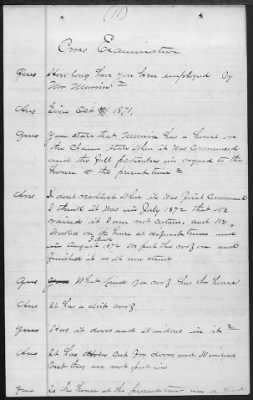 (11)
Cross Examination
Ques How long have you been employed by
Mr Morris
Ans Since Oct 1871.
Ques You state that Morris has a house on
the Claim state when it was Commenced
and the full particulars in regard to the
house to the present time
Ans I dont recollect when it was first Commenced
I think it was in July 1872 that we
raised it I am not certain, and we
worked on the house at different times and
in August I think 1872 we put the roof on and
finished it as it now stands
Ques What kind of a roof has the house
Ans It has a dirt roof
Ques Has it doors and windows in it
Ans It has holes cut for doors and windows
but they are not put in
Ques is the house at the present time in a good